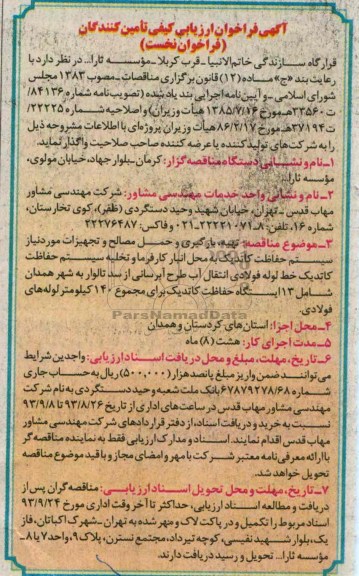 آگهی فراخوان ارزیابی کیفی تأمین کنندگان
(فراخوان نخست)
قرارگاه سازندگی خاتم‌الانبیا ـ قرب کربلا ـ مؤسسه ثارا... در نظر دارد با
رعایت بند «ج» ماده (۱۲) قانون برگزاری مناقصات ـ مصوب ۱۳۸۳ مجلس
شورای اسلامی ـ و آیین نامه اجرایی بند یاد شده (تصویب نامه شماره ۸۴۱۳۶/
ت ۳۳۵۶۰هـ مورخ ۱۳۸۵/۷/۱۶ هیأت وزیران) و اصلاحیه شماره ۲۲۲۲۵/
ت ۳۷۱۹۴هـ مورخ ۸۶/۲/۱۷ هیأت وزیران پروژه‌ای با اطلاعات مشروحه ذیل
را به شرکت‌های تولید کننده یا عرضه کننده صاحب صلاحیت واگذار نماید.
۱ـ نام و نشانی دستگاه مناقصه گزار: کرمان ـ بلوار جهاد، خیابان مولوی،
مؤسسه ثارا...
۲ـ نام و نشانی واحد خدمات مهندسی مشاور: شرکت مهندسی مشاور
مهاب قدس ـ تهران، خیابان شهید وحید دستگردی (ظفر)، کوی تخارستان،
شماره ۱۶، تلفن: ۸ـ۲۲۲۲۱۰۷۱ـ۰۲۱ و فاکس: ۲۲۲۷۶۴۸۷
۳ـ موضوع مناقصه: تهیه، بارگیری و حمل مصالح و تجهیزات مورد نیاز
سیستم حفاظت کاتدیک به محل انبار کارفرما و تخلیه سیستم حفاظت
کاتدیک خط لوله فولادی انتقال آب طرح آبرسانی از سد تالوار به شهر همدان
شامل ۱۳ ایستگاه حفاظت کاتدیک برای مجموع ۱۴۰ کیلومتر لوله‌های
فولادی.
ParsNamadData
۴ـ محل اجرا: استان های کردستان و همدان
۵ـ مدت اجرای کار: هشت (۸) ماه
۶ـ تاریخ، مهلت، مبلغ و محل دریافت اسناد ارزیابی: واجدین شرایط
می‌توانند ضمن واریز مبلغ پانصد هزار (۵۰۰,۰۰۰) ریال به حساب جاری
شماره ۶۷۸۷۹۲۷۸/۶۸ بانک ملت شعبه وحید دستگردی به نام شرکت
مهندسی مشاور مهاب قدس در ساعت‌های اداری از تاریخ ۹۳/۸/۲۶ تا ۹۳/۹/۸
نسبت به خرید و دریافت اسناد، از دفتر قراردادهای شرکت مهندسی مشاور
مهاب قدس اقدام نمایند. اسناد و مدارک ارزیابی فقط به نماینده مناقصه گر
با ارائه معرفی نامه معتبر شرکت با مهر و امضای مجاز و با قید موضوع مناقصه
تحویل خواهد شد.
۷ـ تاریخ، مهلت و محل تحویل اسناد ارزیابی: مناقصه گران پس از
دریافت و مطالعه اسناد ارزیابی، حداکثر تا آخر وقت اداری مورخ ۹۳/۹/۲۴
اسناد مربوط را تکمیل و در پاکت لاک و مهر شده به تهران ـ شهرک اکباتان، فاز
یک، بلوار شهید نفیسی، کوچه تیرداد، مجتمع نسترن، پلاک ۹، واحد ۷ یا ۸ ـ
مؤسسه ثارا... تحویل و رسید دریافت دارند.